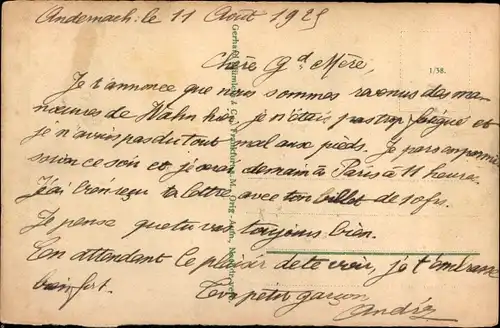 Andernach. le 11 Août 1925
Chère Gd Mère,
1/58.
Je t'annonce que nous sommes revenus des ma-
nœuvres de Hahn hier. je n'étais pas trop fatigué et
je n'avais pas du tout mal aux pieds. Je pars en permis-
sion ce soir et je serai demain à Paris à 11 heures.
J'ai bien reçu ta lettre avec ton billet de 10 frs.
Je pense que tu vas toujours bien.
En attendant le plaisir de te voir, je t'embrasse
bien fort.
Ton petit garçon
André
Gerhard Blümlein & Co., Frankfurt a. M.